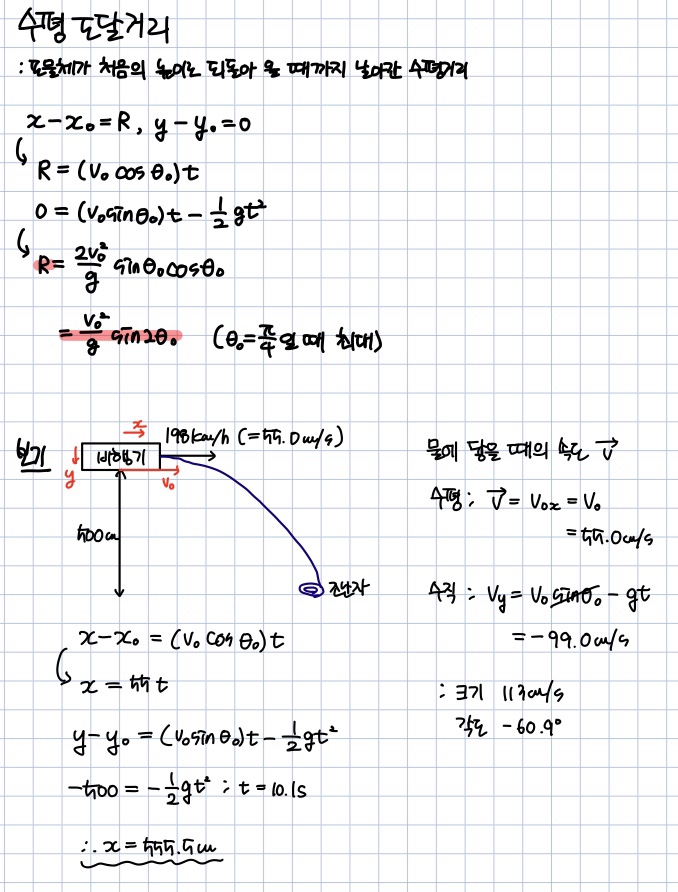 수평 도달거리
: 포물체가 처음의 높이로 되돌아 올 때까지 날아간 수평거리
x - x₀ = R, y - y₀ = 0
R = (v₀ cos θ₀)t
0 = (v₀ sin θ₀)t - 1/2 gt²
R = 2v₀²/g sin θ₀ cos θ₀
= v₀²/g sin 2θ₀ (θ₀ = π/4 일 때 최대)
보기
x
y
비행기
198 km/h (= 55.0 m/s)
v₀
500m
조난자
x - x₀ = (v₀ cos θ₀)t
x = 55t
y - y₀ = (v₀ sin θ₀)t - 1/2 gt²
-500 = -1/2 gt² ; t = 10.1s
∴ x = 555.5m
물에 닿을 때의 속도 v⃗
수평 ; v⃗ = v₀ₓ = v₀
= 55.0 m/s
수직 ; Vy = V₀ sin θ₀ - gt
= -99.0 m/s
: 크기 113 m/s
각도 -60.9°